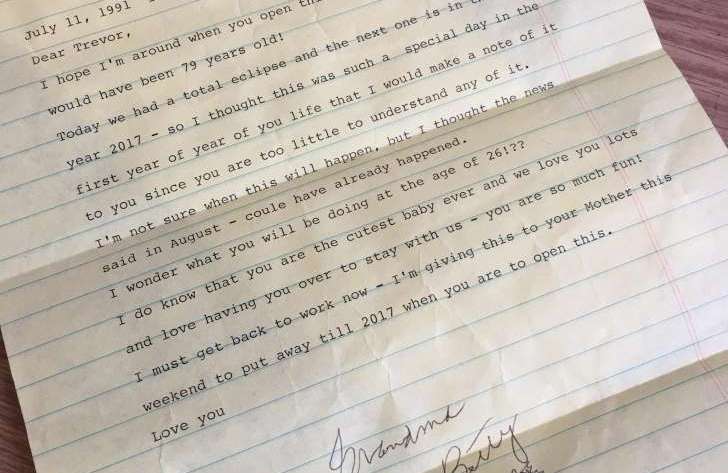 July 11, 1991
Dear Trevor,
I hope I'm around when you open
would have been 79 years old!
Today we had a total eclipse and the next one is in
year 2017 - so I thought this was such a special day in the
first year of year of you life that I would make a note of it
to you since you are too little to understand any of it.
I'm not sure when this will happen, but I thought the news
said in August - coule have already happened.
I wonder what you will be doing at the age of 26!??
I do know that you are the cutest baby ever and we love you lots
and love having you over to stay with us - you are so much fun!
I must get back to work now - I'm giving this to your Mother this
weekend to put away till 2017 when you are to open this.
Love you
Grandma
Betty